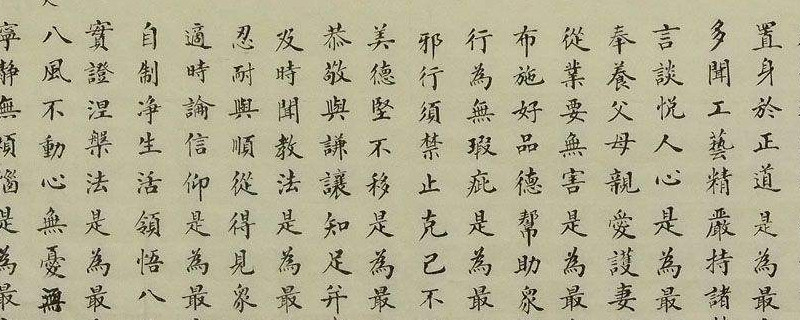 置身於正道是為最
多聞工藝精嚴持諸
言談悅人心是為最
奉養父母親愛護妻
從業要無害是為最
布施好品德幫助眾
行為無瑕疵是為最
邪行須禁止克己不
美德堅不移是為最
恭敬與謙讓知足并
及時聞教法是為最
忍耐與順從得見眾
適時論信仰是為最
自制净生活領悟八
實證涅槃法是為最
八風不動心無憂無
寧静無煩惱是為最